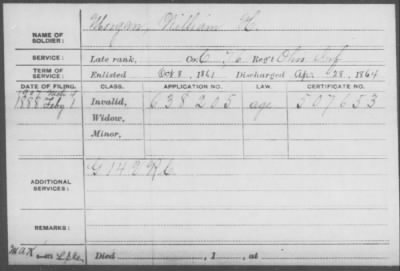 NAME OF SOLDIER: Morgan, William H.
SERVICE: Late rank, Co. C, 76 Reg't Ohio Inf
TERM OF SERVICE: Enlisted Oct 8, 1861 Discharged Apr 28, 1864
DATE OF FILING. CLASS. APPLICATION NO. LAW. CERTIFICATE NO.
1888 Feby 1 Invalid, 638205 age 507653
Widow,
Minor,
ADDITIONAL SERVICES: G 142
REMARKS:
Died , 1 , at